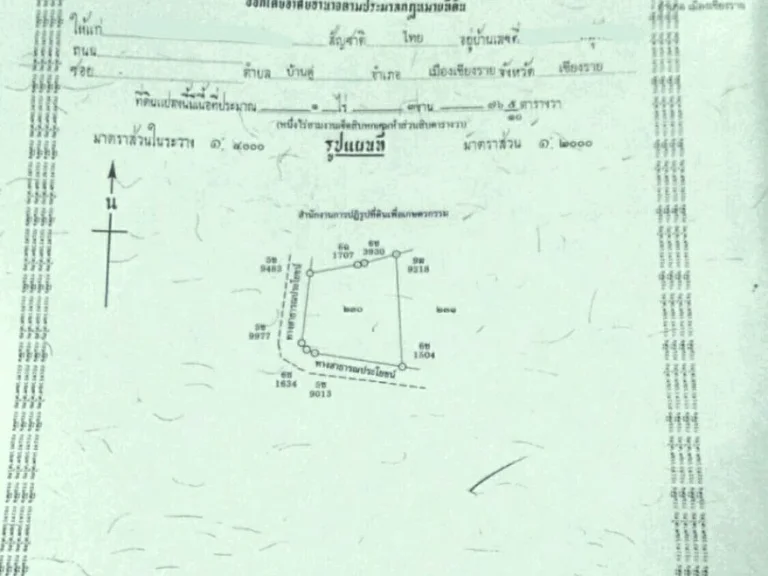 ออกโดยอาศัยอำนาจตามประมวลกฎหมายที่ดิน
อำเภอ เมืองเชียงราย
ให้แก่ สัญชาติ ไทย อยู่บ้านเลขที่
ถนน
ซอย ตำบล บ้านดู่ อำเภอ เมืองเชียงราย จังหวัด เชียงราย
ที่ดินแปลงนี้มีเนื้อที่ประมาณ ๑ ไร่ ๓ งาน ๗๖ ๕/๑๐ ตารางวา
(หนึ่งไร่สามงานเจ็ดสิบหกเศษห้าส่วนสิบตารางวา)
มาตราส่วนในระวาง ๑ : ๔๐๐๐ รูปแผนที่ มาตราส่วน ๑ : ๒๐๐๐
น
สำนักงานการปฏิรูปที่ดินเพื่อเกษตรกรรม
1707
3930
9483
9218
ทางสาธารณประโยชน์
๒๓๐
๒๓๑
9977
1504
ทางสาธารณประโยชน์
1634
9013